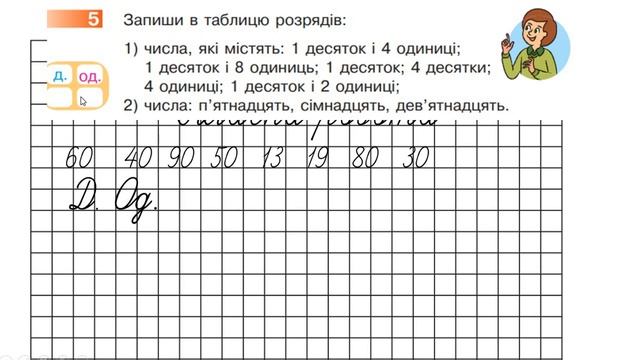 5 Запиши в таблицю розрядів:
1) числа, які містять: 1 десяток і 4 одиниці;
1 десяток і 8 одиниць; 1 десяток; 4 десятки;
4 одиниці; 1 десяток і 2 одиниці;
2) числа: п’ятнадцять, сімнадцять, дев’ятнадцять.
д. од.
60 40 90 50 13 19 80 30
Д. Од.